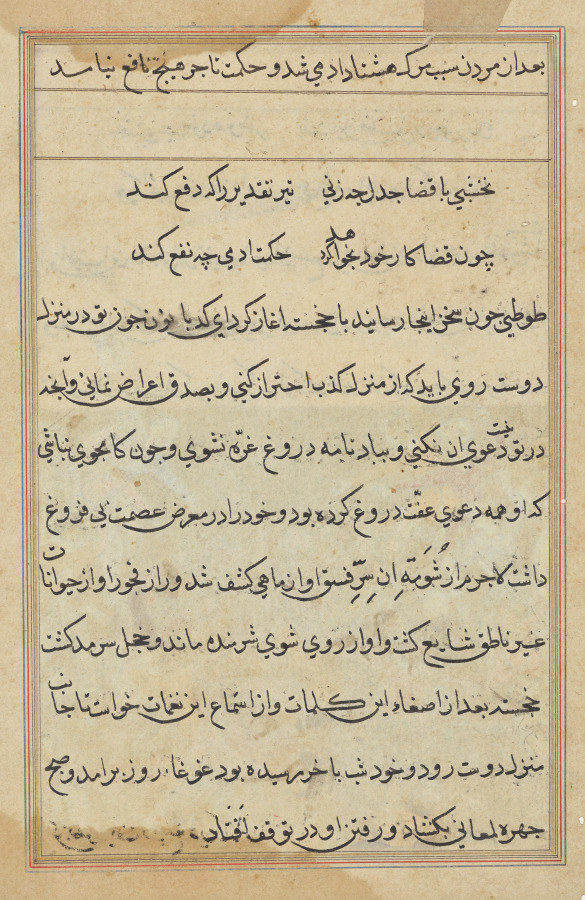 بعد از مردن سبب مرک هشتاد ادمی شد و حکمت تاجر هیچ نافع نیامد
نخشبی با قضا جدل چه زنی تیر تقدیر را که دفع کند
چون قضا کار خود بخواهد کرد حکمت ادمی چه نفع کند
طوطی چون سخن اینجا رسانید با خجسته اغاز کرد ای کدبانو چون تو در منزل
دوست روی باید که از منزل کذب احتراز کنی و بصدق اعراض نمائی و آنچه
در نیت تو دعوی ان نکنی و بباد نامه دروغ غره نشوی و چون کامجوی نباشی
که او همه دعوی عفت دروغ کرده بود و خود را در معرض عصمت بی فروغ
داشت لاجرم از شومة ان سر فسق او از ماهی کشف شد و راز فجور او از حیوانات
غیر ناطق شایع کشت و او از روی شوی شرمنده ماند و خجل سرمد کشت
خجسته بعد از اصغاء این کلمات و از استماع این نغمات خواست تا جانب
منزل دوست رود و خود شب باخر رسیده بود غوغاء روز برامد و صبح
چهره لمعانی بکشاد و رفتن او در توقف افتاد